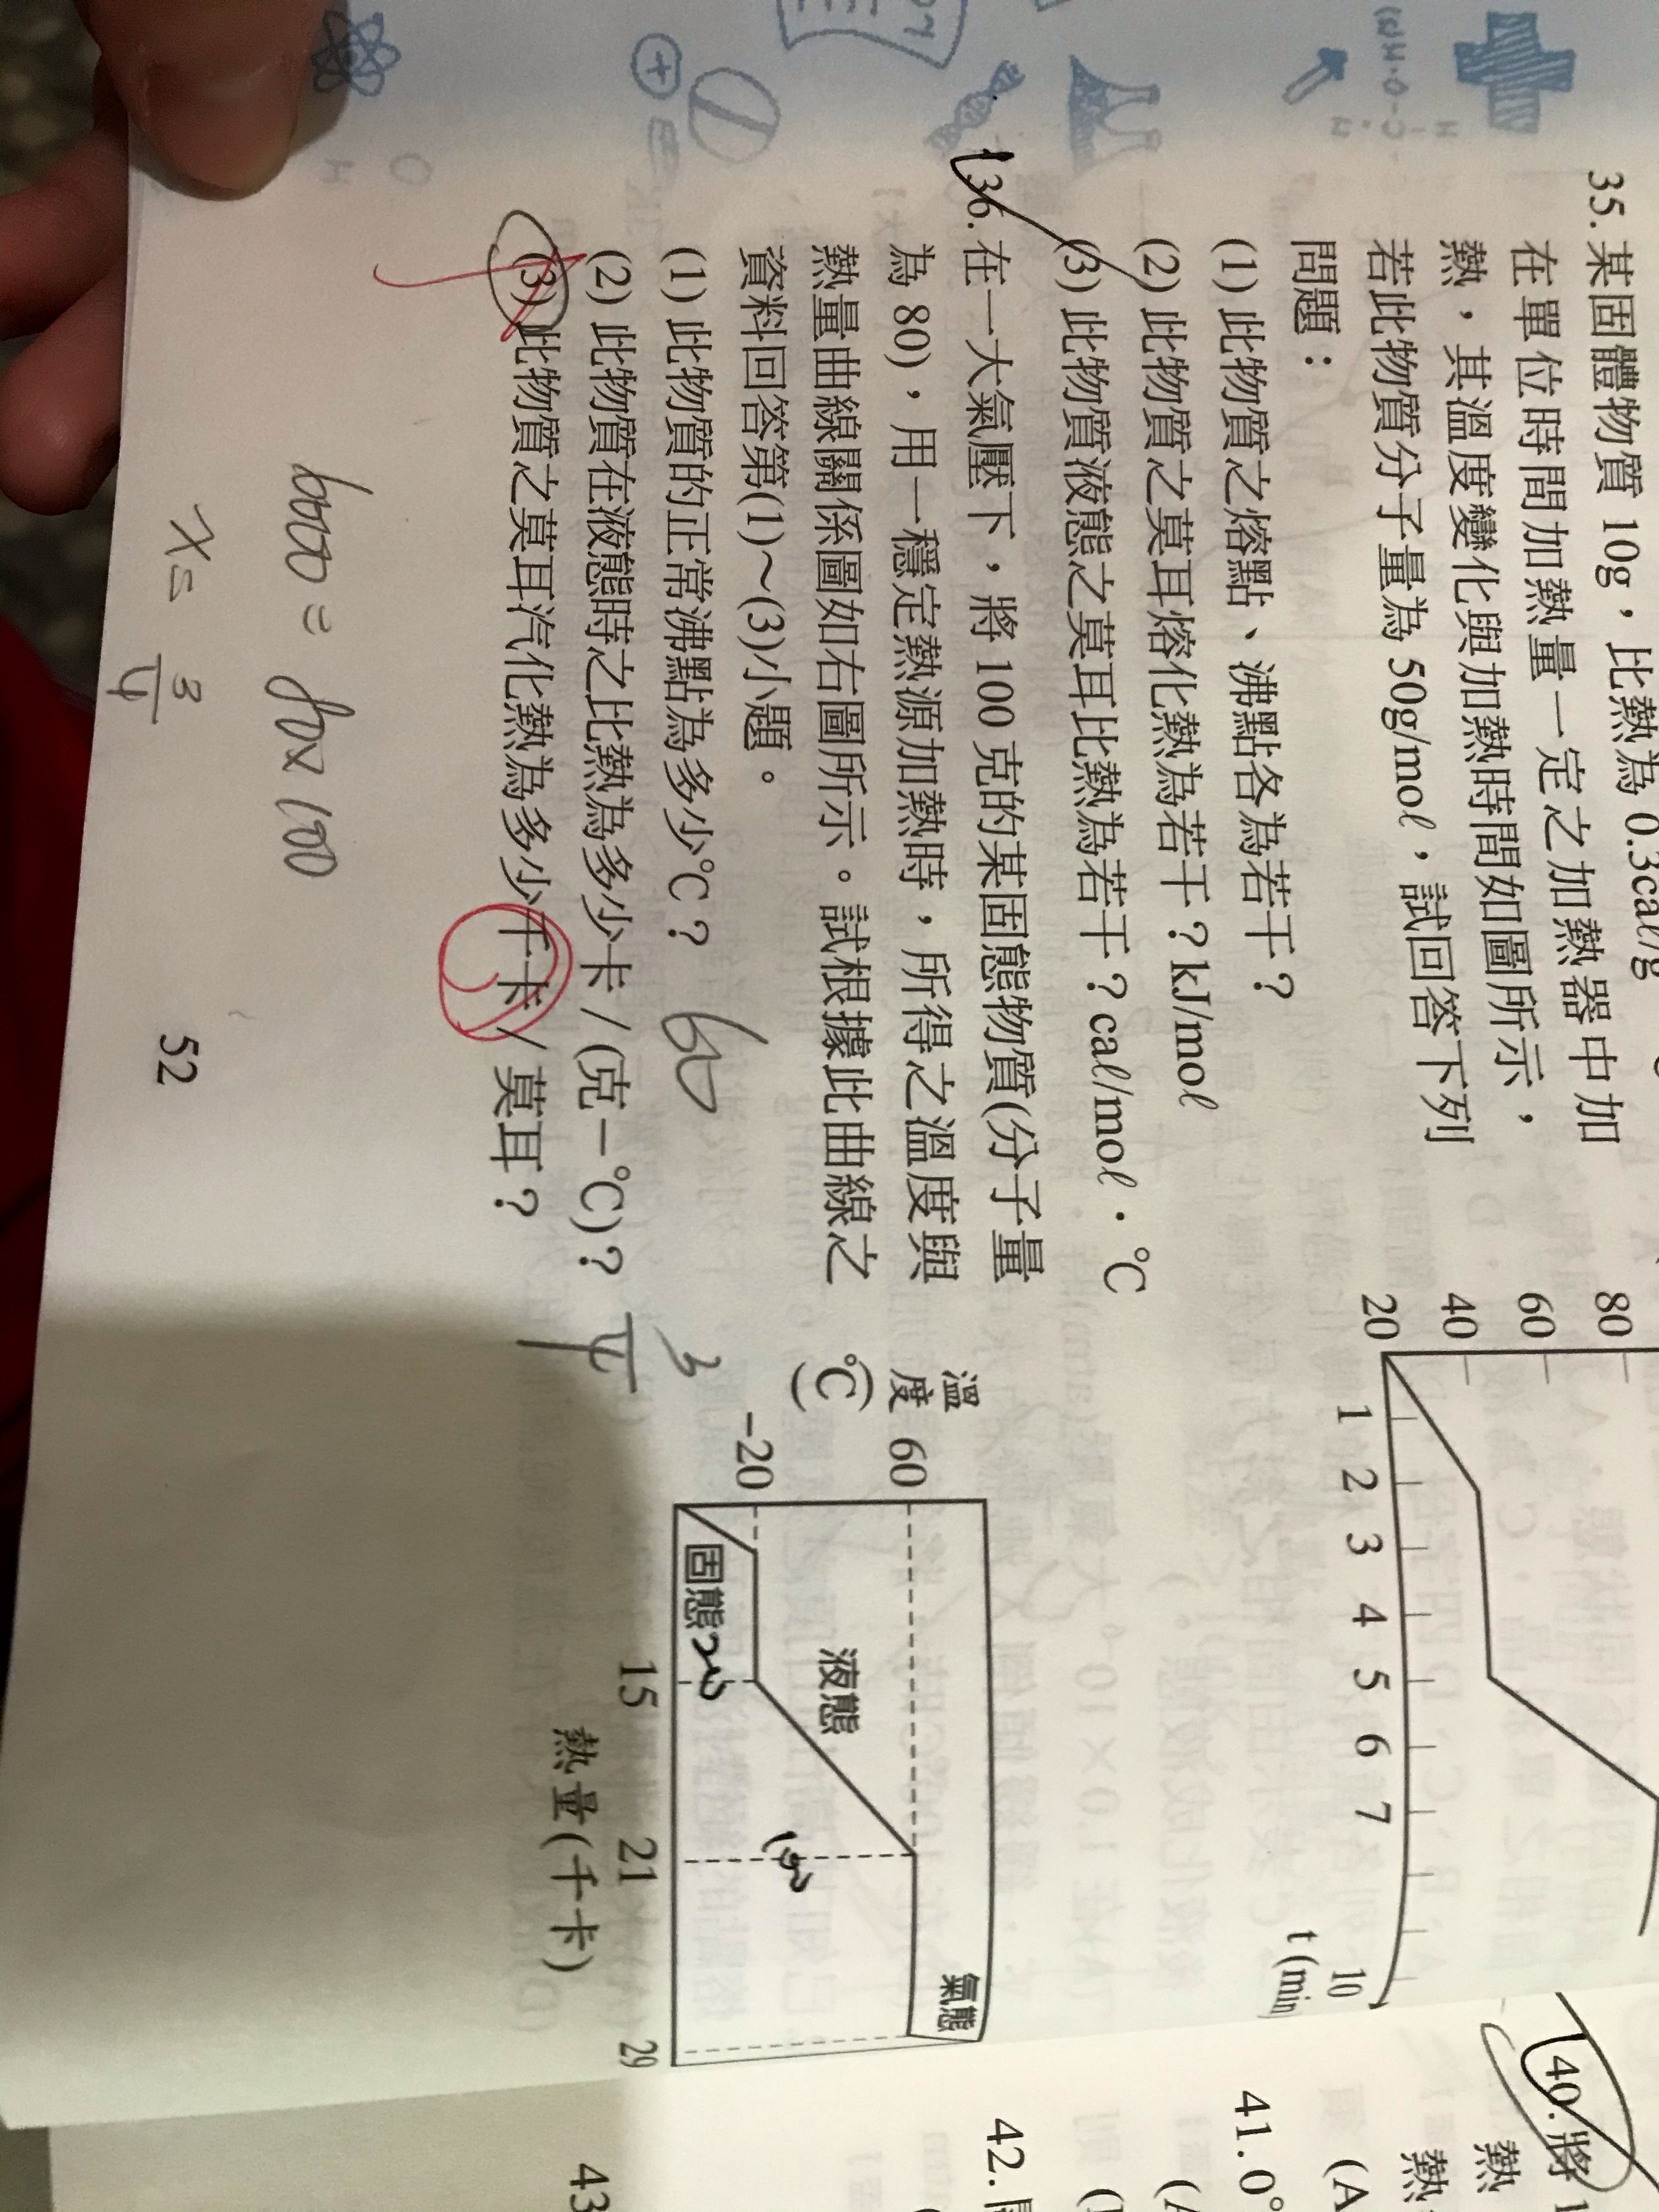 35.某固體物質 10g，比熱為 0.3cal/g
在單位時間加熱量一定之加熱器中加
熱，其溫度變化與加熱時間如圖所示，
若此物質分子量為 50g/moℓ，試回答下列
問題：
(1) 此物質之熔點、沸點各為若干？
(2) 此物質之莫耳熔化熱為若干？kJ/moℓ
(3) 此物質液態之莫耳比熱為若干？caℓ/moℓ．℃
80
60
40
20
1 2 3 4 5 6 7 10
t(min
36.在一大氣壓下，將 100 克的某固態物質(分子量
為 80)，用一穩定熱源加熱時，所得之溫度與
熱量曲線關係圖如右圖所示。試根據此曲線之
資料回答第(1)～(3)小題。
(1) 此物質的正常沸點為多少℃？ 60
(2) 此物質在液態時之比熱為多少卡 / (克－℃)？ 3/4
(3) 此物質之莫耳汽化熱為多少千卡 / 莫耳？
溫度(℃)
60
-20
固態
液態
氣態
15 21 29
熱量(千卡)
6000 = 80x 100
x= 3/4
52
40.將
熱
熱
(A
41.0°
(A
42.
43